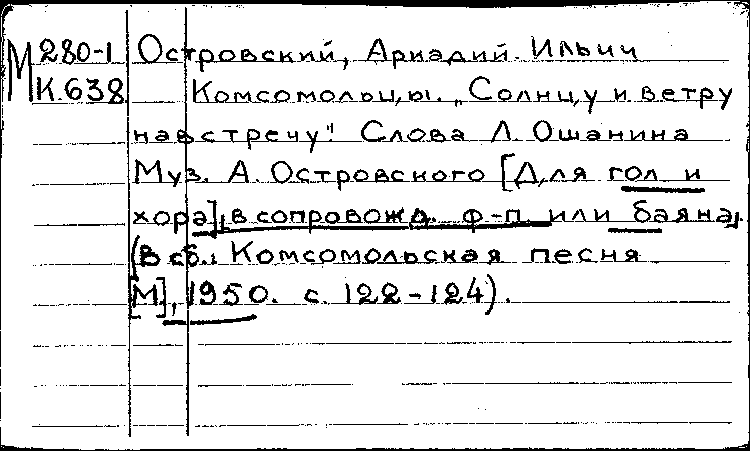 М 280-1 Островский, Аркадий Ильич
К.638 Комсомольцы. „Солнцу и ветру
навстречу". Слова Л. Ошанина
Муз. А. Островского [Для гол и
хора], в сопровожд. ф-п. или баяна,
(В сб.: Комсомольская песня
[М], 1950. с. 122-124).